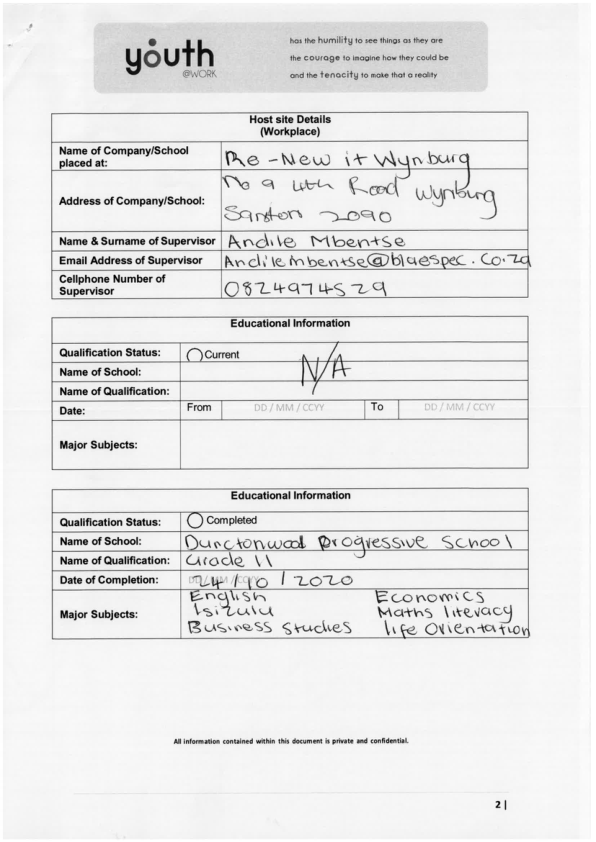 youth
@WORK
has the humility to see things as they are
the courage to imagine how they could be
and the tenacity to make that a reality
Host site Details
(Workplace)
Name of Company/School placed at: Re-New it Wynburg
Address of Company/School: No 9 4th Road Wynburg
Santon 2090
Name & Surname of Supervisor Andile Mbentse
Email Address of Supervisor Andilembentse@bluespec.co.za
Cellphone Number of Supervisor 0824974529
Educational Information
Qualification Status: Current
Name of School: N/A
Name of Qualification:
Date: From DD / MM / CCYY To DD / MM / CCYY
Major Subjects:
Educational Information
Qualification Status: Completed
Name of School: Dunctonwood Progressive School
Name of Qualification: Grade 11
Date of Completion: DD / MM / CCYY 24 / 10 / 2020
Major Subjects: English Economics
Isizulu Maths literacy
Business Studies life Orientation
All information contained within this document is private and confidential.
2 |